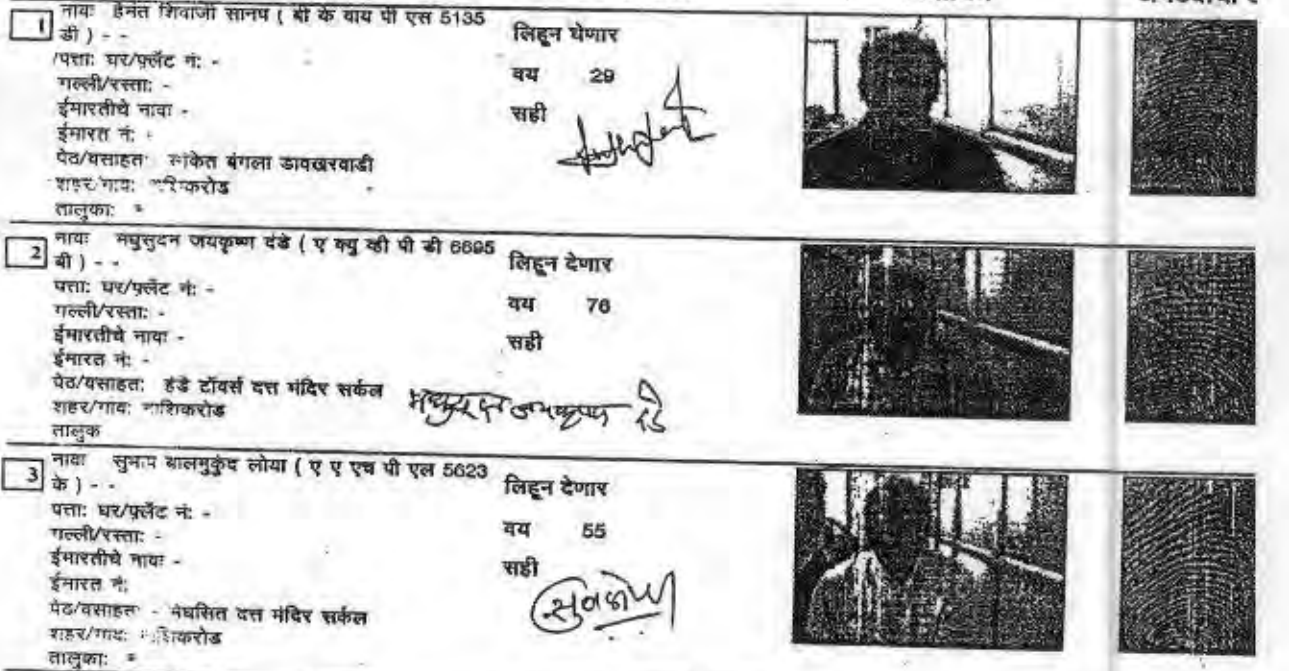 1
नावः हेमंत शिवाजी सानप ( बी के वाय पी एस 5135
डी ) - -
पत्ता: घर/फ़्लॅट नं: -
गल्ली/रस्ता: -
ईमारतीचे नावः -
ईमारत नं: -
पेठ/वसाहतः साकेत बंगला डावखरवाडी
शहर/गावः नाशिकरोड
तालुका:
लिहून घेणार
वय 29
सही
2
नावः मधुसुदन जयकृष्ण दंडे ( ए क्यु व्ही पी डी 6695
बी ) - -
पत्ता: घर/फ़्लॅट नं: -
गल्ली/रस्ता: -
ईमारतीचे नावः -
ईमारत नं: -
पेठ/वसाहतः दंडे टॉवर्स दत्त मंदिर सर्कल
शहर/गावः नाशिकरोड
तालुक
लिहून देणार
वय 76
सही
मधुसुदन जयकृष्ण दंडे
3
नावः सुभाष बालमुकुंद लोया ( ए ए एच पी एल 5623
के ) - -
पत्ता: घर/फ़्लॅट नं: -
गल्ली/रस्ता: -
ईमारतीचे नावः -
ईमारत नं:
पेठ/वसाहतः - मेघसित दत्त मंदिर सर्कल
शहर/गावः नाशिकरोड
तालुका:
लिहून देणार
वय 55
सही